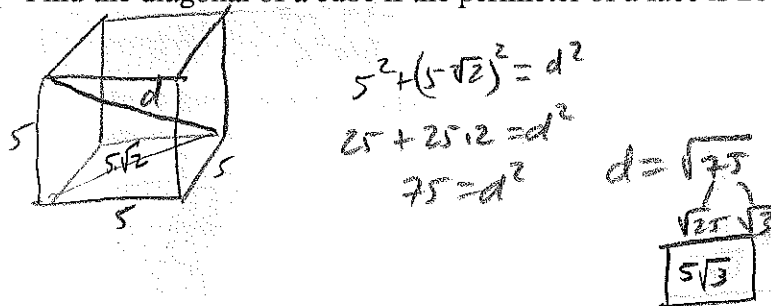 Find the diagonal of a cube if the perimeter of a face is 20
5
d
5√2
5
5
5² + (5√2)² = d²
25 + 25·2 = d²
75 = d²
d = √75
√25 √3
5√3